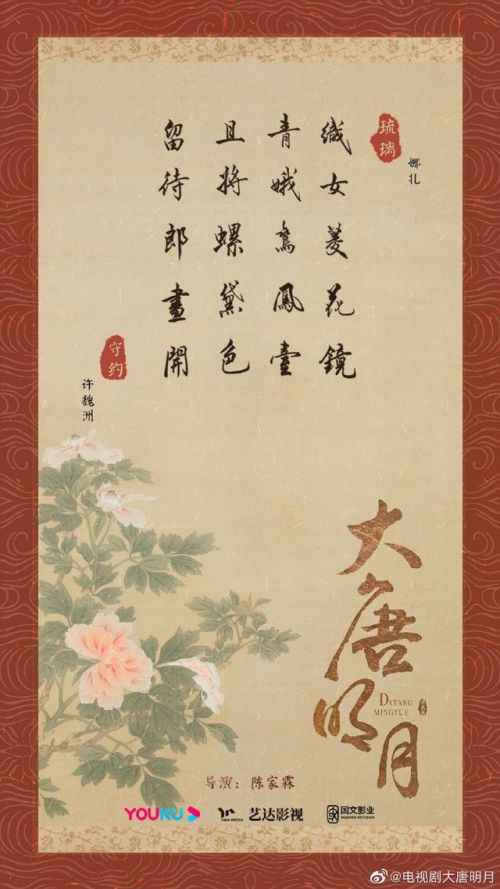 琉璃
娜扎
織女菱花鏡
青娥鸞鳳臺
且將螺黛色
留待郎畫開
守约
许魏洲
大唐明月
DATANG
MINGYUE
导演：陈家霖
YOUKU
艺达影视
国文影业
@电视剧大唐明月